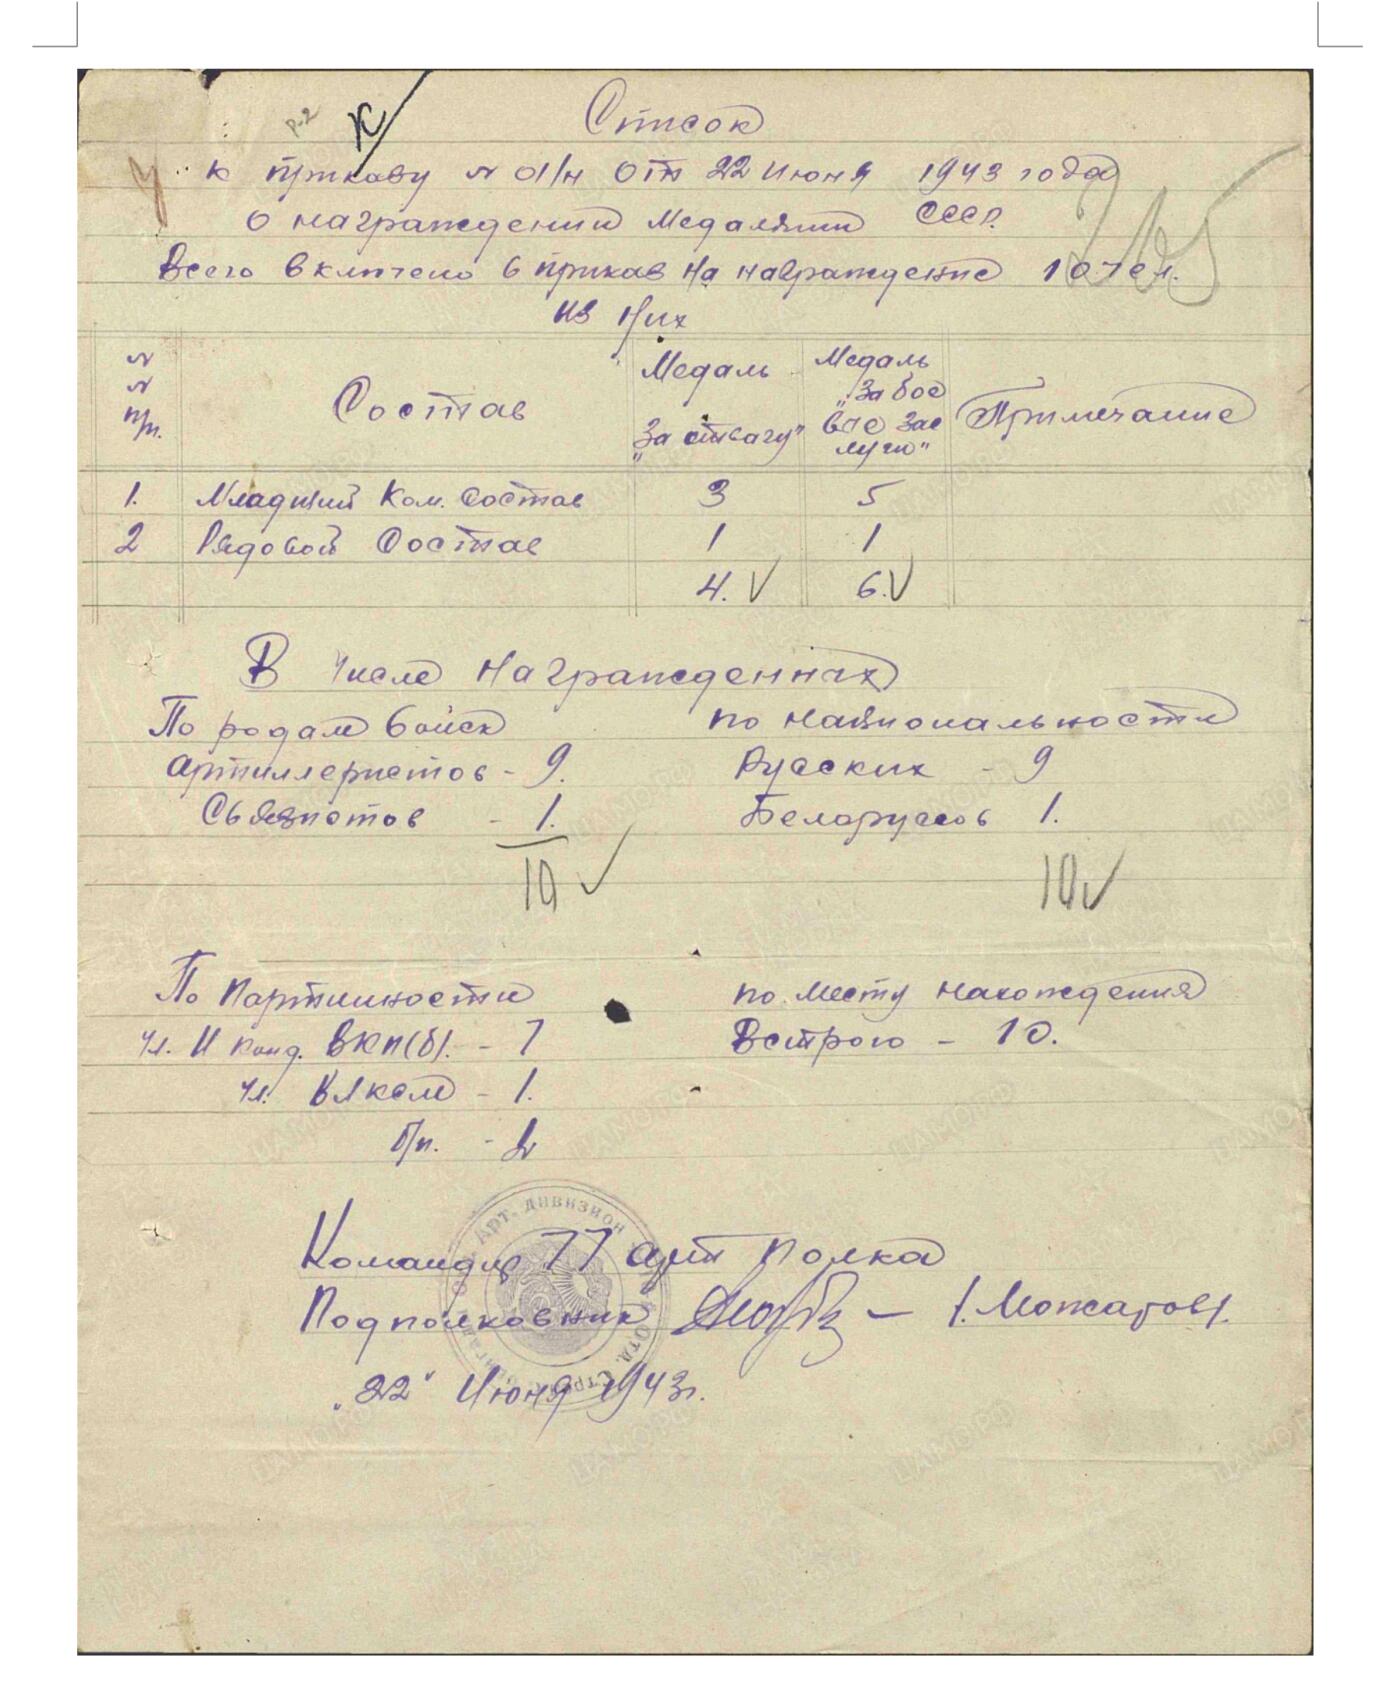 Список
к приказу № 01/н от 22 июня 1943 года
о награждении медалями СССР.
Всего включено в приказ на награждение 10 чел.
из них
№ № п/п. Состав Медаль „За отвагу" Медаль „За боевые заслуги" Примечание
1. Младший Ком. состав 3 5
2 Рядовой состав 1 1
4. 6.
В числе награжденных
По родам войск по национальности
Артиллеристов - 9. Русских - 9
Связистов - 1. Белоруссов 1.
10 10
По партийности по месту нахождения
Чл. и канд. ВКП(б). - 7 В строю - 10.
Чл. ВЛКСМ - 1.
б/п. - 2
Командир 77 арт полка
Подполковник — /.Можаров/.
„22" июня 1943г.
Арт. дивизион